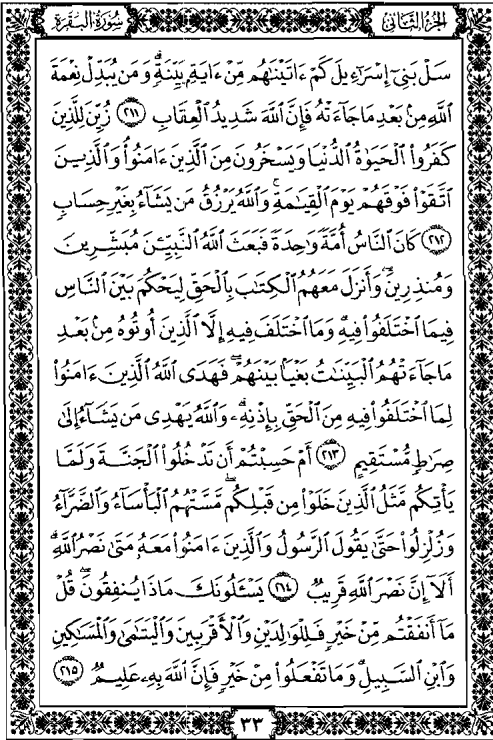 سُورَةُ البَقَرَةِ
الجُزْءُ الثَّانِي
سَلْ بَنِىٓ إِسْرَٰٓءِيلَ كَمْ ءَاتَيْنَٰهُم مِّنْ ءَايَةٍۭ بَيِّنَةٍۗ وَمَن يُبَدِّلْ نِعْمَةَ
ٱللَّهِ مِنۢ بَعْدِ مَا جَآءَتْهُ فَإِنَّ ٱللَّهَ شَدِيدُ ٱلْعِقَابِ ٢١١ زُيِّنَ لِلَّذِينَ
كَفَرُوا۟ ٱلْحَيَوٰةُ ٱلدُّنْيَا وَيَسْخَرُونَ مِنَ ٱلَّذِينَ ءَامَنُوا۟ وَٱلَّذِينَ
ٱتَّقَوْا۟ فَوْقَهُمْ يَوْمَ ٱلْقِيَٰمَةِۗ وَٱللَّهُ يَرْزُقُ مَن يَشَآءُ بِغَيْرِ حِسَابٍ
٢١٢ كَانَ ٱلنَّاسُ أُمَّةً وَٰحِدَةً فَبَعَثَ ٱللَّهُ ٱلنَّبِيِّـۧنَ مُبَشِّرِينَ
وَمُنذِرِينَ وَأَنزَلَ مَعَهُمُ ٱلْكِتَٰبَ بِٱلْحَقِّ لِيَحْكُمَ بَيْنَ ٱلنَّاسِ
فِيمَا ٱخْتَلَفُوا۟ فِيهِۚ وَمَا ٱخْتَلَفَ فِيهِ إِلَّا ٱلَّذِينَ أُوتُوهُ مِنۢ بَعْدِ
مَا جَآءَتْهُمُ ٱلْبَيِّنَٰتُ بَغْيًۢا بَيْنَهُمْۖ فَهَدَى ٱللَّهُ ٱلَّذِينَ ءَامَنُوا۟
لِمَا ٱخْتَلَفُوا۟ فِيهِ مِنَ ٱلْحَقِّ بِإِذْنِهِۦۗ وَٱللَّهُ يَهْدِى مَن يَشَآءُ إِلَىٰ
صِرَٰطٍ مُّسْتَقِيمٍ ٢١٣ أَمْ حَسِبْتُمْ أَن تَدْخُلُوا۟ ٱلْجَنَّةَ وَلَمَّا
يَأْتِكُم مَّثَلُ ٱلَّذِينَ خَلَوْا۟ مِن قَبْلِكُمۖ مَّسَّتْهُمُ ٱلْبَأْسَآءُ وَٱلضَّرَّآءُ
وَزُلْزِلُوا۟ حَتَّىٰ يَقُولَ ٱلرَّسُولُ وَٱلَّذِينَ ءَامَنُوا۟ مَعَهُۥ مَتَىٰ نَصْرُ ٱللَّهِۗ
أَلَآ إِنَّ نَصْرَ ٱللَّهِ قَرِيبٌ ٢١٤ يَسْـَٔلُونَكَ مَاذَا يُنفِقُونَۖ قُلْ
مَآ أَنفَقْتُم مِّنْ خَيْرٍ فَلِلْوَٰلِدَيْنِ وَٱلْأَقْرَبِينَ وَٱلْيَتَٰمَىٰ وَٱلْمَسَٰكِينِ
وَٱبْنِ ٱلسَّبِيلِۗ وَمَا تَفْعَلُوا۟ مِنْ خَيْرٍ فَإِنَّ ٱللَّهَ بِهِۦ عَلِيمٌ ٢١٥
٣٣